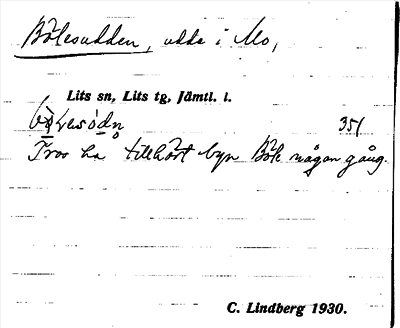 Bölesudden, udde i Mo,
Lits sn, Lits tg, Jämtl. l.
351
Tros ha tillhört byn Böle någon gång.
C. Lindberg 1930.